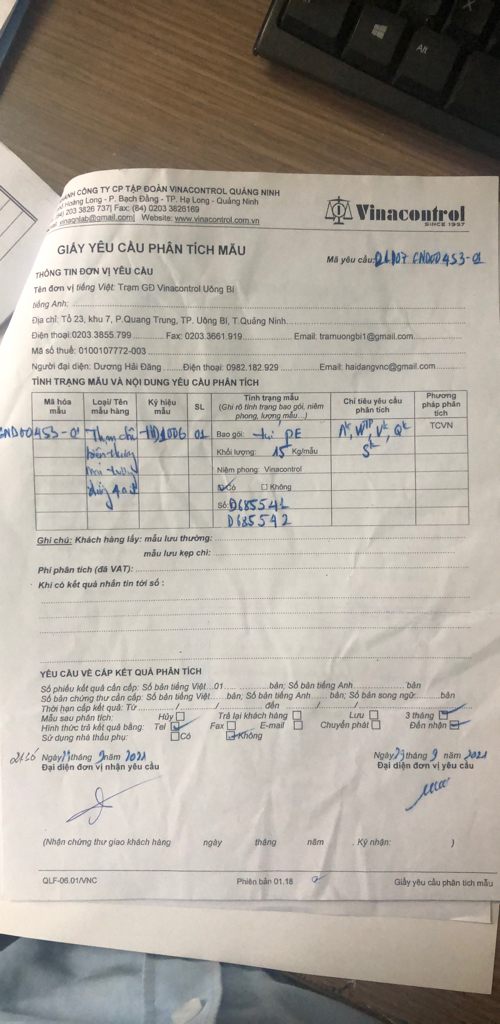 ÁNH CÔNG TY CP TẬP ĐOÀN VINACONTROL QUẢNG NINH
Hoàng Long - P. Bạch Đằng - TP. Hạ Long - Quảng Ninh
84) 203 3826 737| Fax: (84) 0203 3826169
vinaqnlab@gmail.com| Website: www.vinacontrol.com.vn
Vinacontrol
SINCE 1957
GIẤY YÊU CẦU PHÂN TÍCH MẪU
Mã yêu cầu: GND00453-01
THÔNG TIN ĐƠN VỊ YÊU CẦU
Tên đơn vị tiếng Việt: Trạm GĐ Vinacontrol Uông Bí
tiếng Anh:
Địa chỉ: Tổ 23, khu 7, P.Quang Trung, TP. Uông Bí, T Quảng Ninh
Điện thoại:0203.3855.799 Fax: 0203.3661.919 Email: tramuongbi1@gmail.com
Mã số thuế: 0100107772-003
Người đại diện: Dương Hải Đăng Điện thoại: 0982.182.929 Email: haidangvnc@gmail.com
TÌNH TRẠNG MẪU VÀ NỘI DUNG YÊU CẦU PHÂN TÍCH
Mã hóa mẫu Loại/ Tên mẫu hàng Ký hiệu mẫu SL Tình trạng mẫu (Ghi rõ tình trạng bao gói, niêm phong, lượng mẫu...) Chỉ tiêu yêu cầu phân tích Phương pháp phân tích
GND00453-01 Than HD1006 01 Bao gói: túi PE Aᵏ, Wᵀᴾ, Vᵏ, Qᵏ TCVN
Khối lượng: 15 Kg/mẫu Sᵏ
Niêm phong: Vinacontrol
☑Có ☐Không
Số: D685541
D685542
Ghi chú: Khách hàng lấy: mẫu lưu thường:
mẫu lưu kẹp chì:
Phí phân tích (đã VAT):
Khi có kết quả nhắn tin tới số :
YÊU CẦU VỀ CẤP KẾT QUẢ PHÂN TÍCH
Số phiếu kết quả cần cấp: Số bản tiếng Việt ..01.... bản; Số bản tiếng Anh bản
Số bản chứng thư cần cấp: Số bản tiếng Việt bản; Số bản tiếng Anh bản; Số bản song ngữ bản
Thời hạn cấp kết quả: Từ / / đến / /
Mẫu sau phân tích: Hủy ☐ Trả lại khách hàng ☐ Lưu ☐ 3 tháng ☑
Hình thức trả kết quả bằng: Tel ☑ Fax ☐ E-mail ☐ Chuyển phát ☐ Đến nhận ☑
Sử dụng nhà thầu phụ: ☐Có ☑Không
Ngày 29 tháng 9 năm 2021 Ngày 29 tháng 9 năm 2021
Đại diện đơn vị nhận yêu cầu Đại diện đơn vị yêu cầu
(Nhận chứng thư giao khách hàng ngày tháng năm . Ký nhận: )
QLF-06.01/VNC Phiên bản 01.18 Giấy yêu cầu phân tích mẫu
Alt